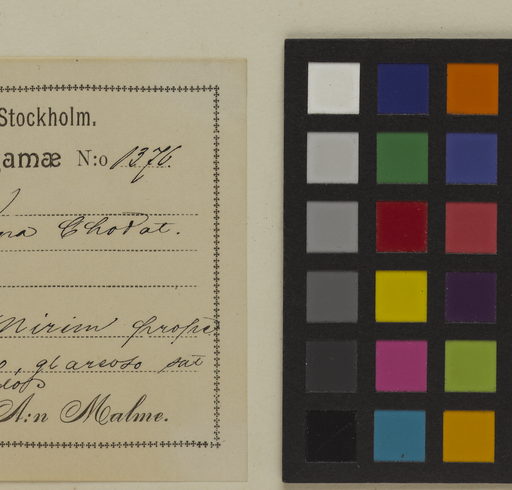 Stockholm.
gamæ N:o 1376.
Chodat.
Mirim prope
glareoso sat
A:n Malme.